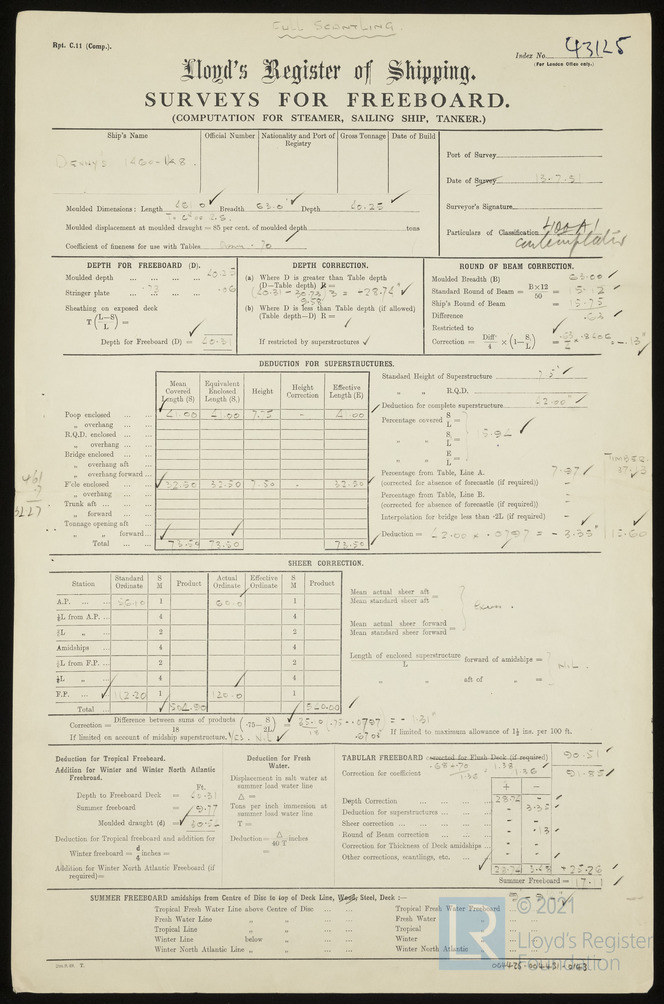 FULL SCANTLING.
Rpt. C.11 (Comp.).
Index No. 43125
(For London Office only.)
Lloyd's Register of Shipping.
SURVEYS FOR FREEBOARD.
(COMPUTATION FOR STEAMER, SAILING SHIP, TANKER.)
Ship's Name
Official Number
Nationality and Port of Registry
Gross Tonnage
Date of Build
Denny's
Port of Survey
Date of Survey 13.7.51
Surveyor's Signature
Particulars of Classification 100 A1
contemplated
Moulded Dimensions: Length 461.0 Breadth 63.0 Depth 40.25
Moulded displacement at moulded draught = 85 per cent. of moulded depth tons
Coefficient of fineness for use with Tables
DEPTH FOR FREEBOARD (D).
Moulded depth ... 40.25
Stringer plate ... .06
Sheathing on exposed deck
T (L–S / L) =
Depth for Freeboard (D) = 40.31
DEPTH CORRECTION.
(a) Where D is greater than Table depth
(D—Table depth) R =
(40.31 - 30.73) 3 = -28.74"
(b) Where D is less than Table depth (if allowed)
(Table depth—D) R =
If restricted by superstructures
ROUND OF BEAM CORRECTION.
Moulded Breadth (B) 63.00
Standard Round of Beam = B×12 / 50 = 15.12
Ship's Round of Beam = 15.75
Difference .63
Restricted to
Correction = Diff / 4 × (1–S₁ / L) = .13"
DEDUCTION FOR SUPERSTRUCTURES.
Mean Covered Length (S)
Equivalent Enclosed Length (S₁)
Height
Height Correction
Effective Length (E)
Poop enclosed ... 41.00 41.00 7.75 - 41.00
„ overhang
R.Q.D. enclosed
„ overhang
Bridge enclosed
„ overhang aft
„ overhang forward
F'cle enclosed ... 32.50 32.50 7.50 - 32.50
„ overhang
Trunk aft
„ forward
Tonnage opening aft
„ „ forward
Total ... 73.50 73.50 73.50
Standard Height of Superstructure 7.5'
„ „ R.Q.D.
Deduction for complete superstructure 42.00"
Percentage covered S / L =
„ „ S₁ / L = 15.94
„ „ E / L =
Percentage from Table, Line A. 7.97
(corrected for absence of forecastle (if required))
Percentage from Table, Line B.
(corrected for absence of forecastle (if required))
Interpolation for bridge less than ·2L (if required)
Deduction = 42.00 × .0797 = - 3.35" 15.60
SHEER CORRECTION.
Station
Standard Ordinate
S M
Product
Actual Ordinate
Effective Ordinate
S M
Product
A.P. ... 56.10 1 60.0 1
⅙L from A.P. ... 4 4
⅓L „ 2 2
Amidships 4 4
⅓L from F.P. ... 2 2
⅙L „ 4 4
F.P. ... 112.20 1 120.0 1
Total ... 504.90 540.00
Mean actual sheer aft / Mean standard sheer aft =
Mean actual sheer forward / Mean standard sheer forward =
Length of enclosed superstructure / L forward of amidships =
„ „ aft of „ = NIL.
Correction = Difference between sums of products / 18 (·75– S / 2L) = 35.10 / 18 (.75 - .0797) = - 1.31"
If limited on account of midship superstructure. Yes. Nil
.6703
If limited to maximum allowance of 1½ ins. per 100 ft.
Deduction for Tropical Freeboard.
Addition for Winter and Winter North Atlantic Freeboard.
Ft.
Depth to Freeboard Deck = 40.31
Summer freeboard = 9.77
Moulded draught (d) = 30.54
Deduction for Tropical freeboard and addition for
Winter freeboard = d / 4 inches =
Addition for Winter North Atlantic Freeboard (if required)=
Deduction for Fresh Water.
Displacement in salt water at summer load water line
Δ =
Tons per inch immersion at summer load water line
T =
Deduction = Δ / 40 T inches
=
TABULAR FREEBOARD corrected for Flush Deck (if required) 90.51
Correction for coefficient .68+.70 / 1.36 1.38 / 1.36 91.85
+ -
Depth Correction 28.74 -
Deduction for superstructures - 3.35
Sheer correction - -
Round of Beam correction - .13
Correction for Thickness of Deck amidships -
Other corrections, scantlings, etc. -
28.74 3.48 25.26
Summer Freeboard = 117.11
SUMMER FREEBOARD amidships from Centre of Disc to top of Deck Line, Wood, Steel, Deck :—
Tropical Fresh Water Line above Centre of Disc
Fresh Water Line „ „
Tropical Line „ „
Winter Line below „
Winter North Atlantic Line „ „
Tropical Fresh Water Freeboard
Fresh Water „
Tropical „
Winter „
Winter North Atlantic „
004425-004431-0143
LR
© 2021
Lloyd's Register
Foundation